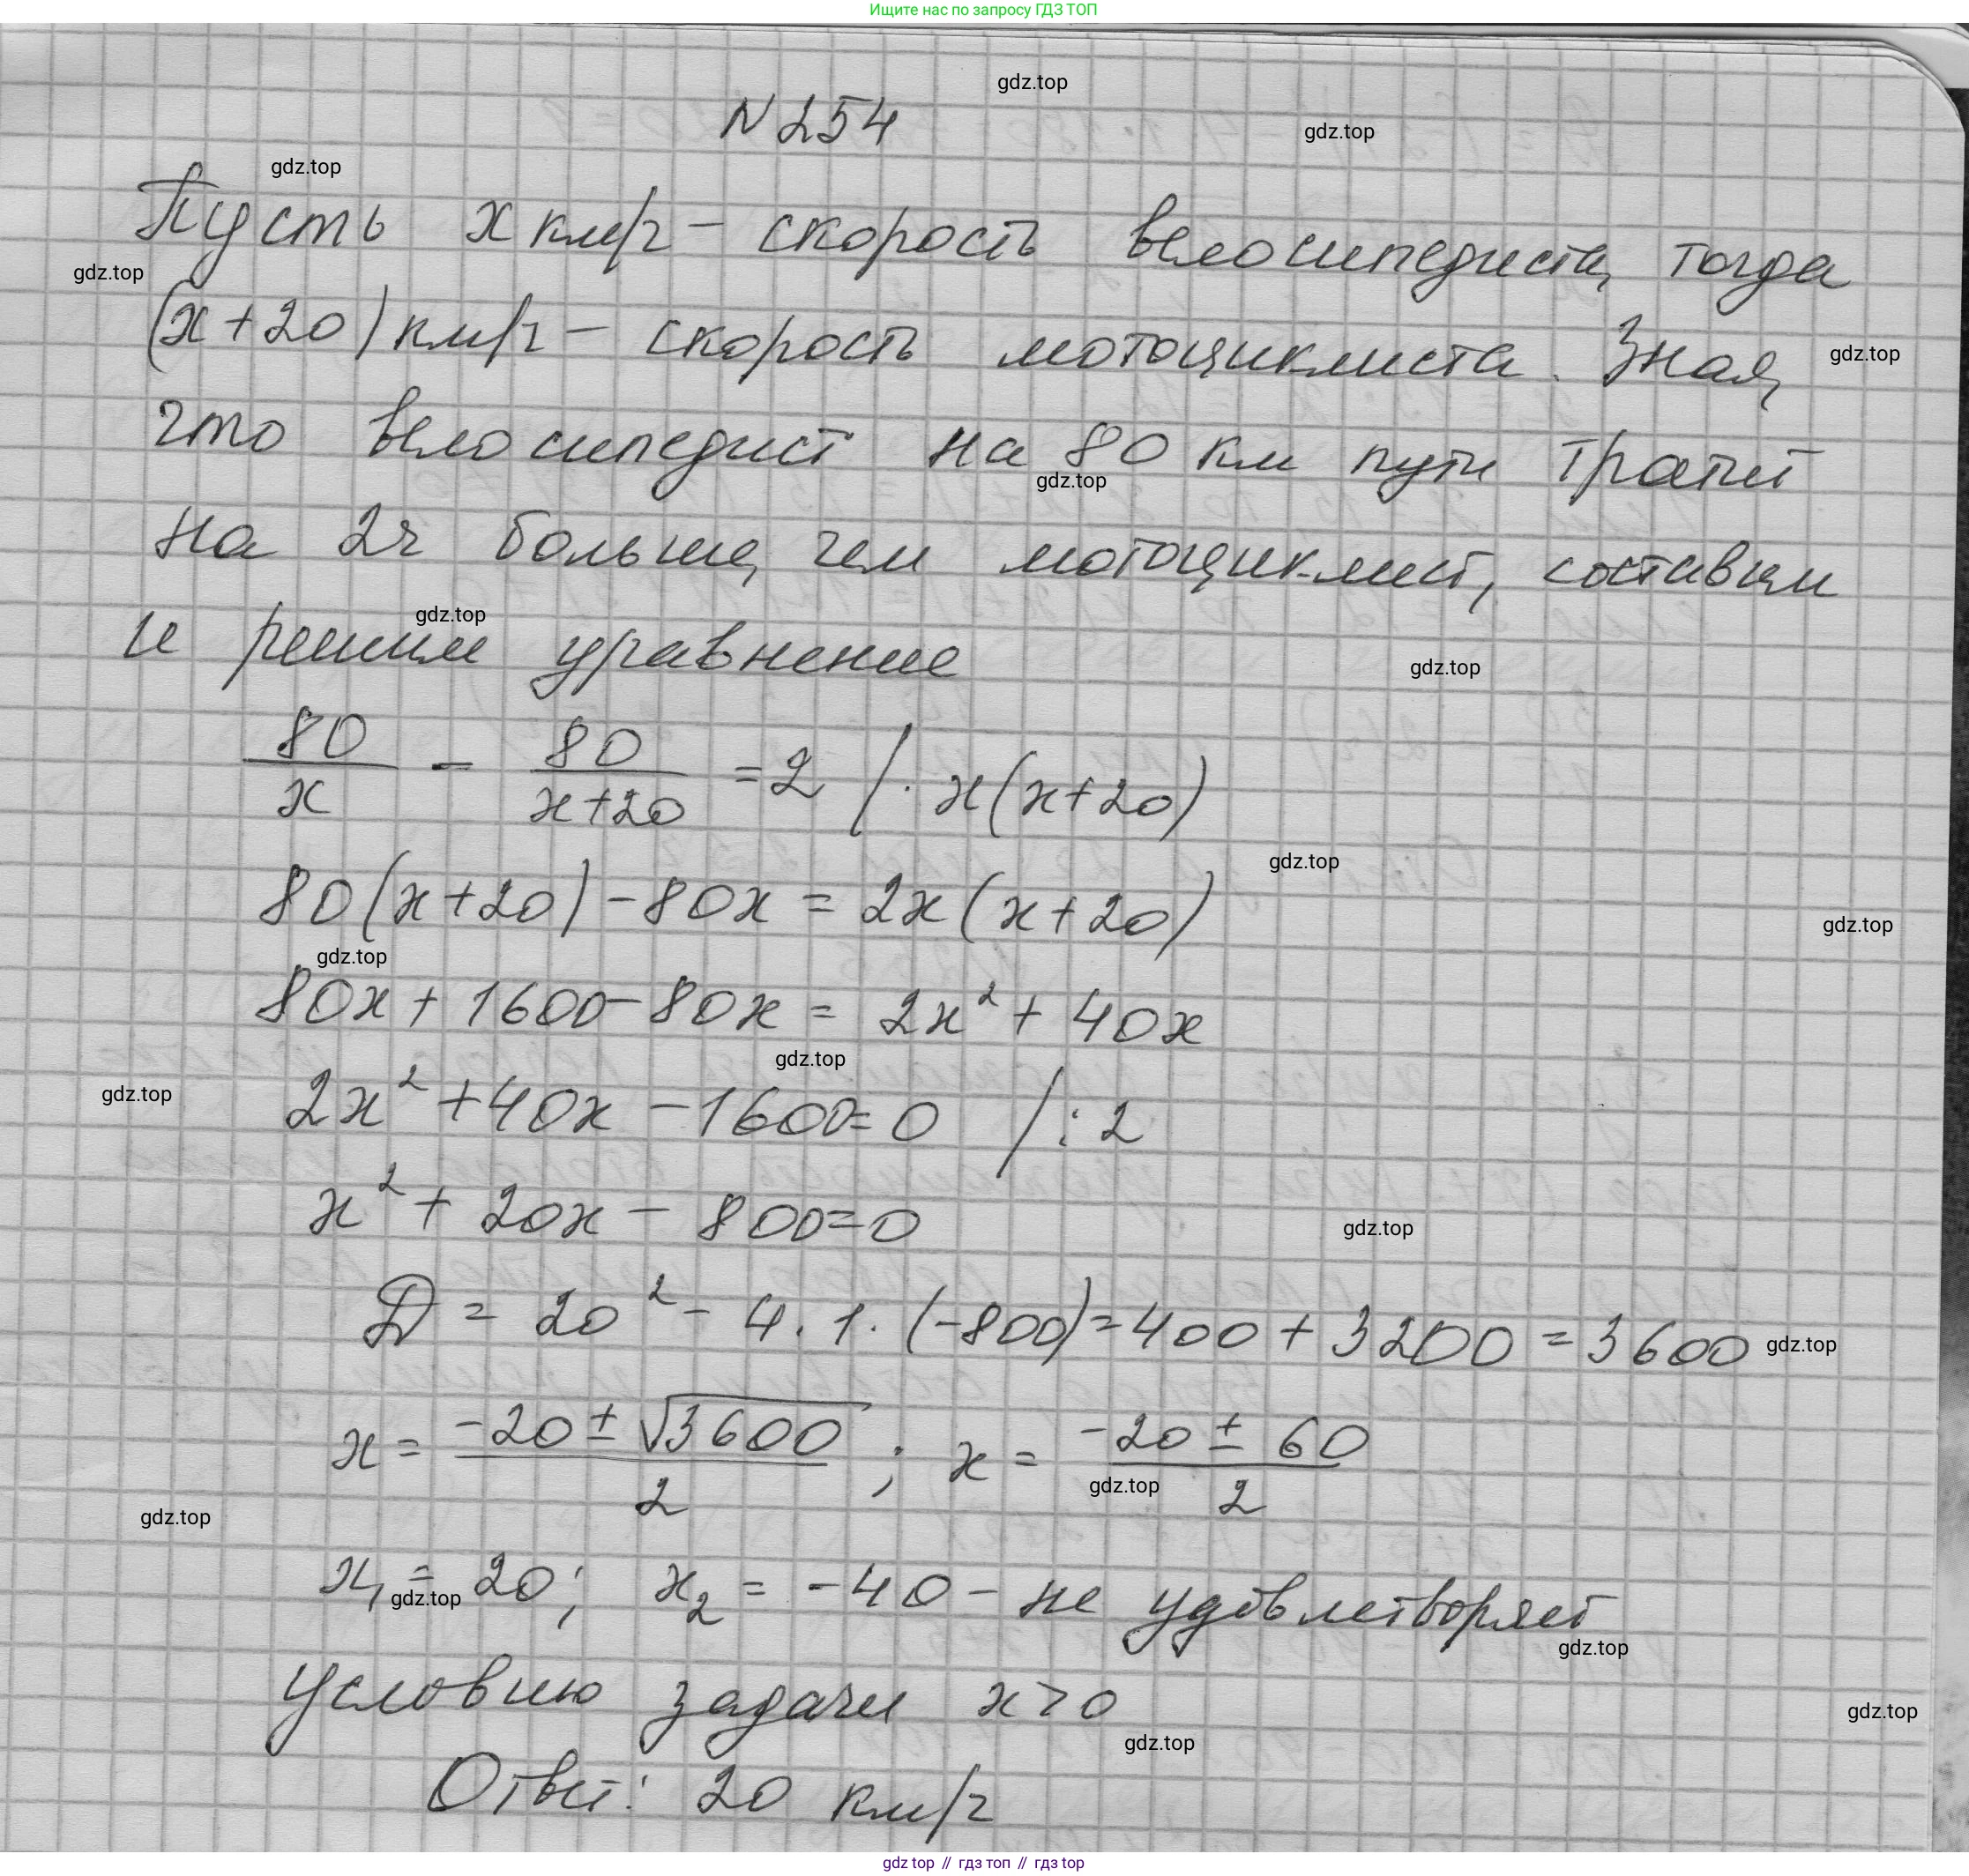 Ищите нас по запросу ГДЗ ТОП
gdz.top
N254
gdz.top
gdz.top
Пусть x км/ч - скорость велосипедиста, тогда
gdz.top
(x+20) км/ч - скорость мотоциклиста. Зная,
gdz.top
что велосипедист на 80 км пути тратит
gdz.top
на 2ч больше, чем мотоциклист, составим
gdz.top
и решим уравнение
gdz.top
80/x - 80/(x+20) = 2 / · x(x+20)
gdz.top
80(x+20) - 80x = 2x(x+20)
gdz.top
gdz.top
80x + 1600 - 80x = 2x² + 40x
gdz.top
gdz.top
2x² + 40x - 1600 = 0 / : 2
x² + 20x - 800 = 0
gdz.top
D = 20² - 4 · 1 · (-800) = 400 + 3200 = 3600
gdz.top
x = (-20 ± √3600)/2 ; x = (-20 ± 60)/2
gdz.top
gdz.top
x₁ = 20; x₂ = -40 - не удовлетворяет
gdz.top
gdz.top
условию задачи x > 0
gdz.top
gdz.top
Ответ: 20 км/ч
gdz top // гдз топ // гдз top